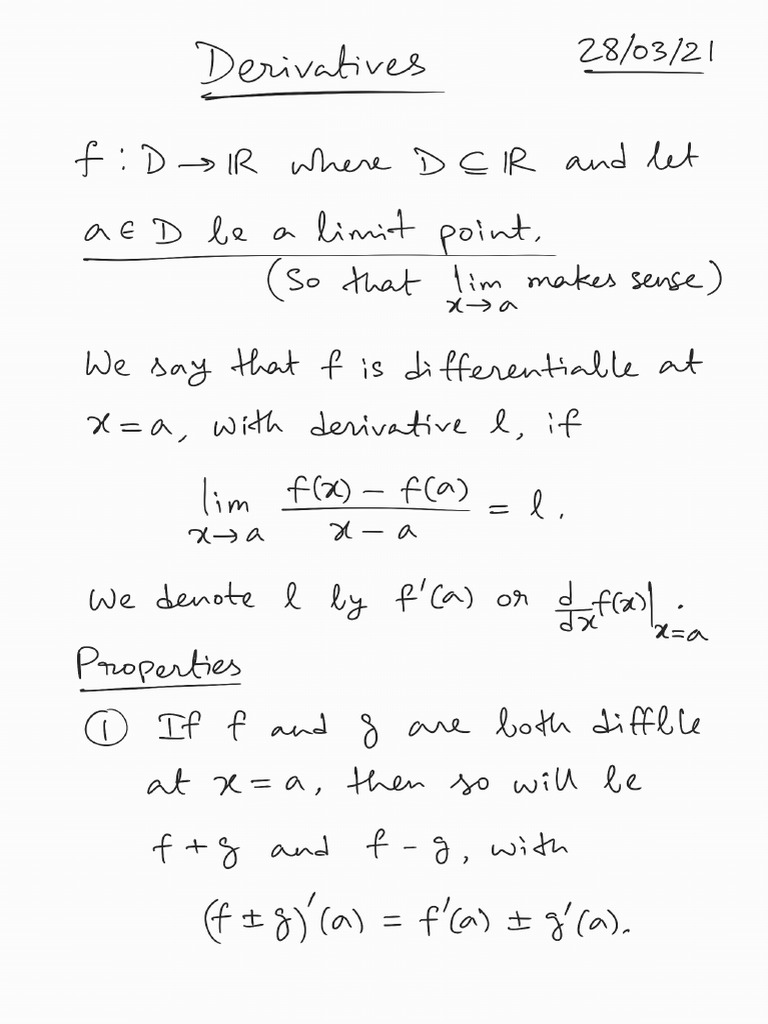 Derivatives 28/03/21
f : D → ℝ where D ⊆ ℝ and let
a ∈ D be a limit point.
(So that lim_{x→a} makes sense)
We say that f is differentiable at
x = a, with derivative l, if
lim_{x→a} (f(x) − f(a))/(x − a) = l.
We denote l by f'(a) or d/dx f(x)|_{x=a}.
Properties
① If f and g are both diffble
at x = a, then so will be
f + g and f − g, with
(f ± g)'(a) = f'(a) ± g'(a).